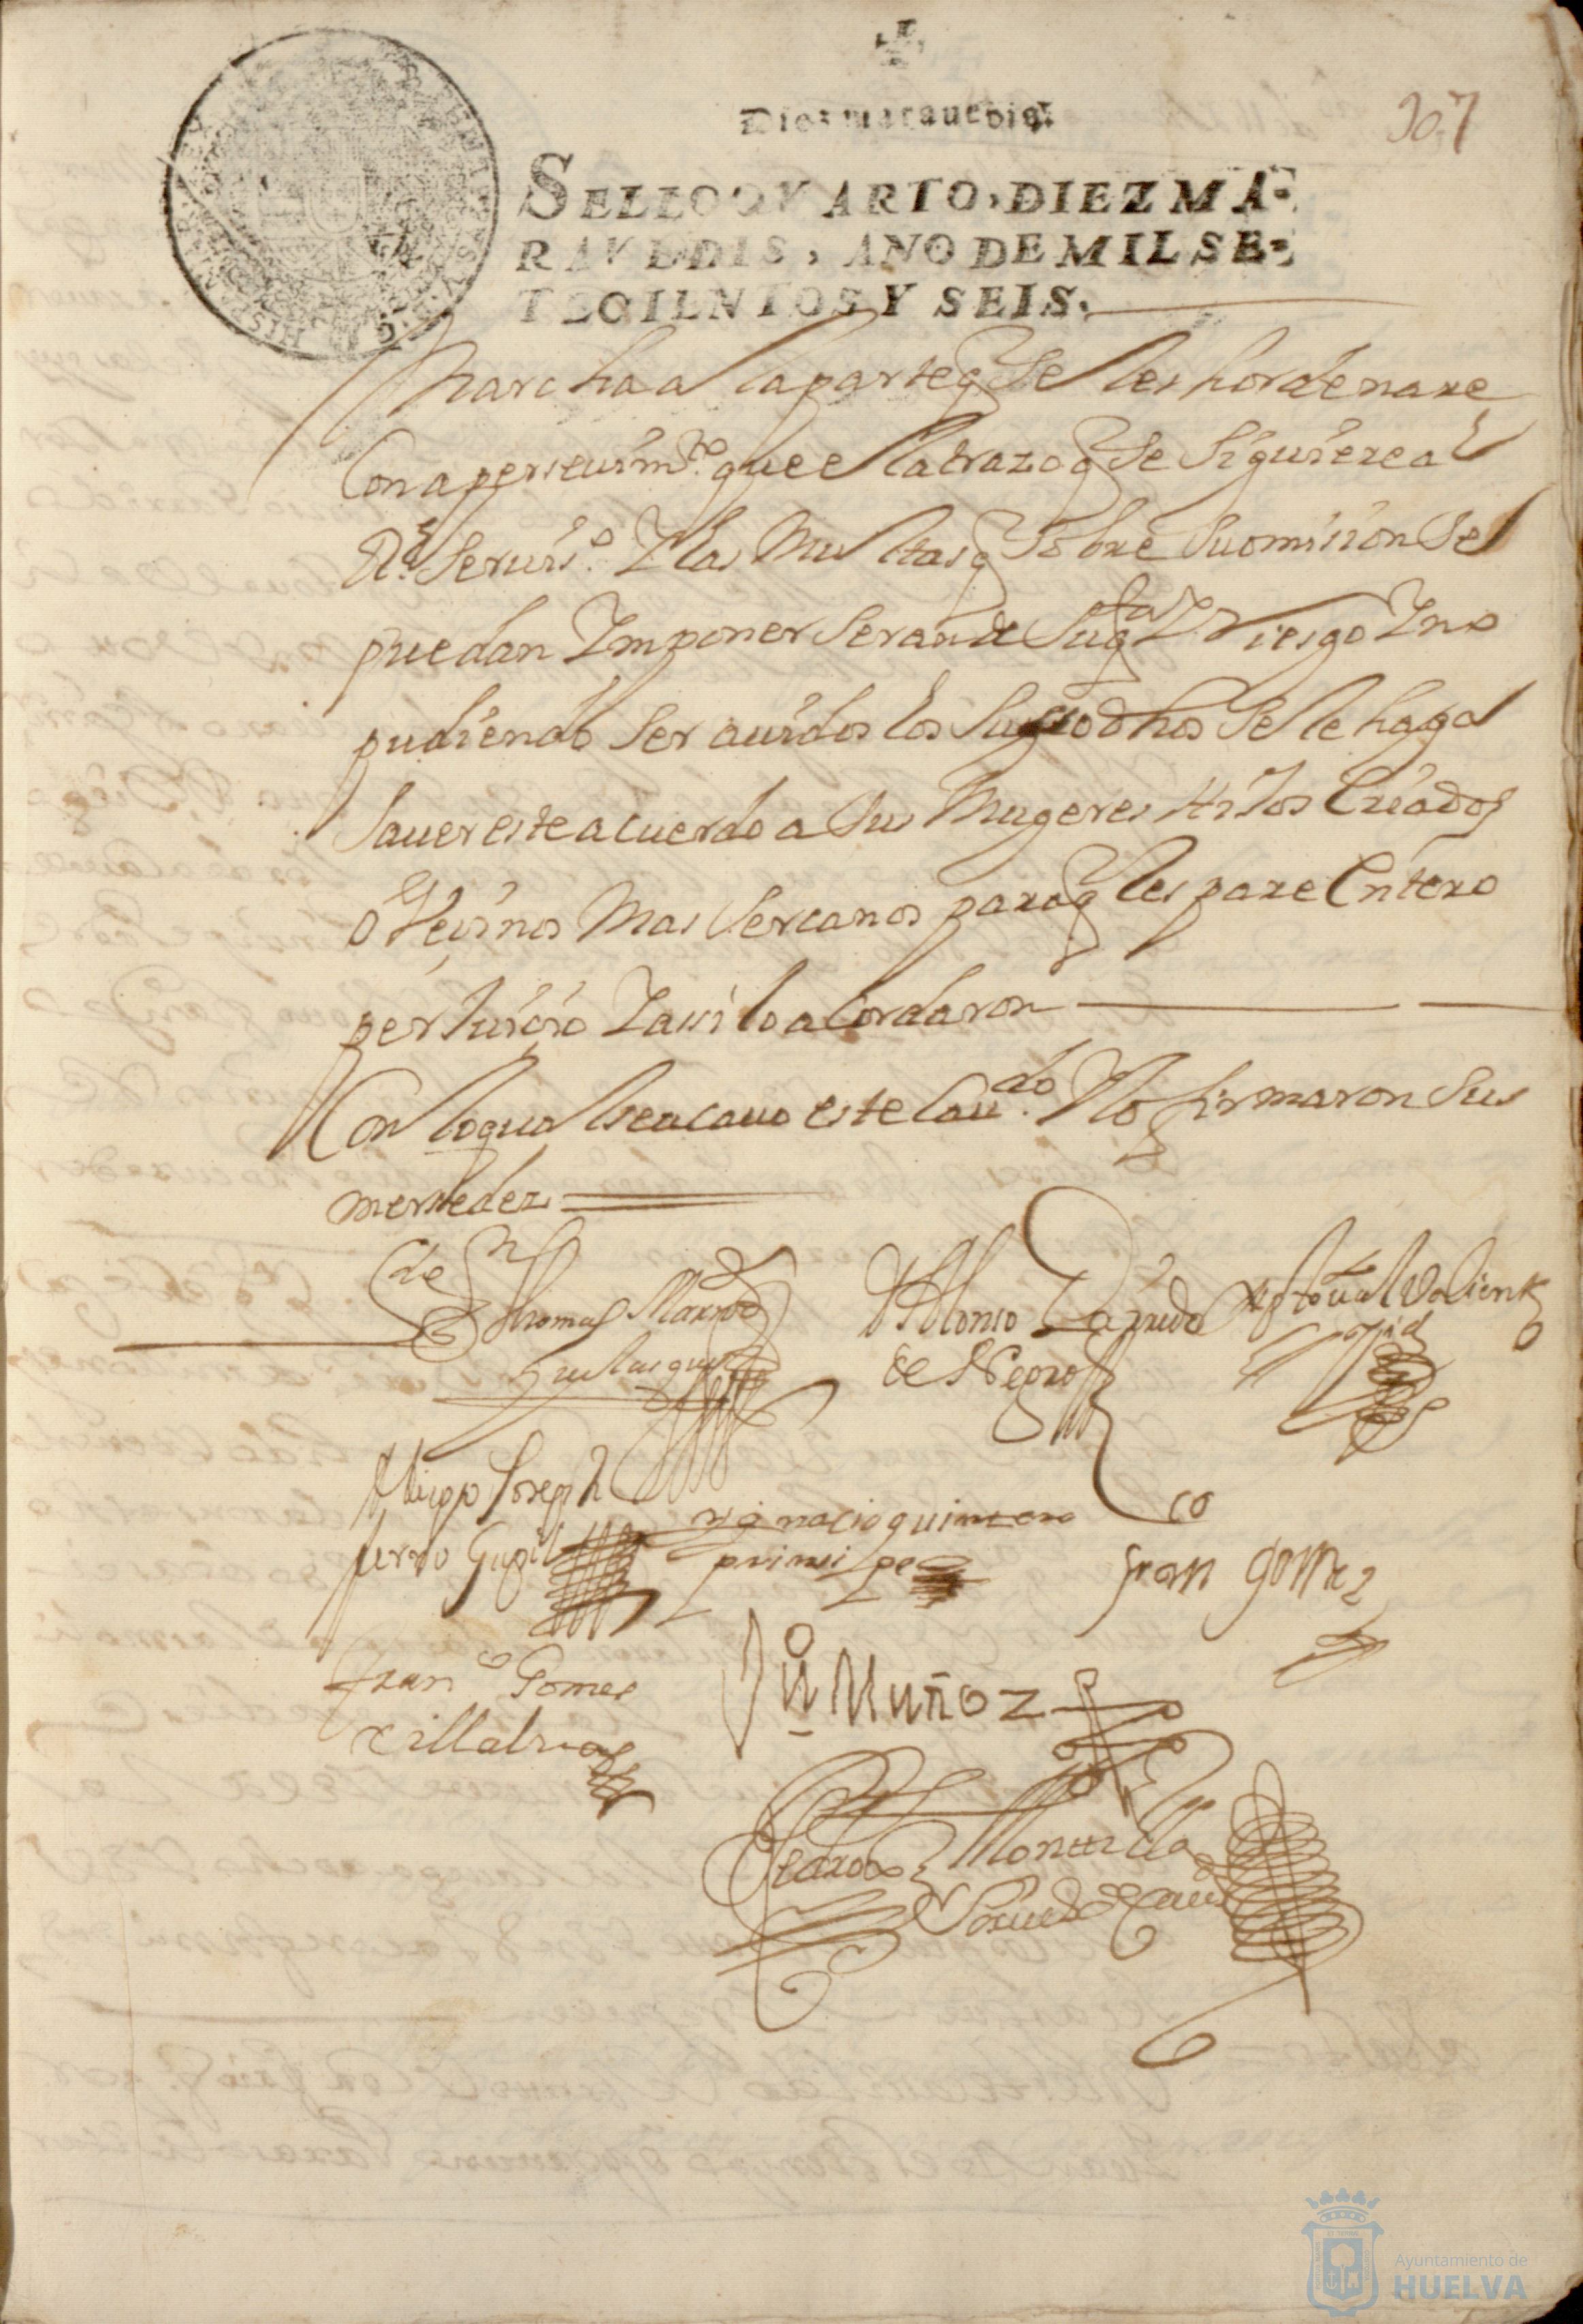 Diez maravedis.
307
SELLO QVARTO, DIEZ MA-
RAVEDIS, AÑO DE MIL SE-
TECIENTOS Y SEIS.
Marcha a la parte q Se les hordenare
Con apersevim.to que el atrazo q Se siguiere al
R.l Servis.o Y las Multas q Sobre Su omission Se
puedan Ymponer Seran de Su q.ta Y Riesgo Y no
pudiendo Ser avidos los Susodhos Se le haga
Saver este acuerdo a Sus Mugeres Hijos Criados
o Vesinos Mas Sercanos para q les pare Entero
perjuisio Y assi lo acordaron
Con lo qual se acavo este Cav.do Y lo firmaron Sus
mersedez
Thomas
Alonso
de Negro
xptoval Valiente
Diego Joseph
ygnacio quintero
prinsipe
fran.co gomez
Fran.co Gomes
villalva
Ju.o Muñoz
Pedro de Montilla
S.no de Cav.do
Ayuntamiento de
HUELVA